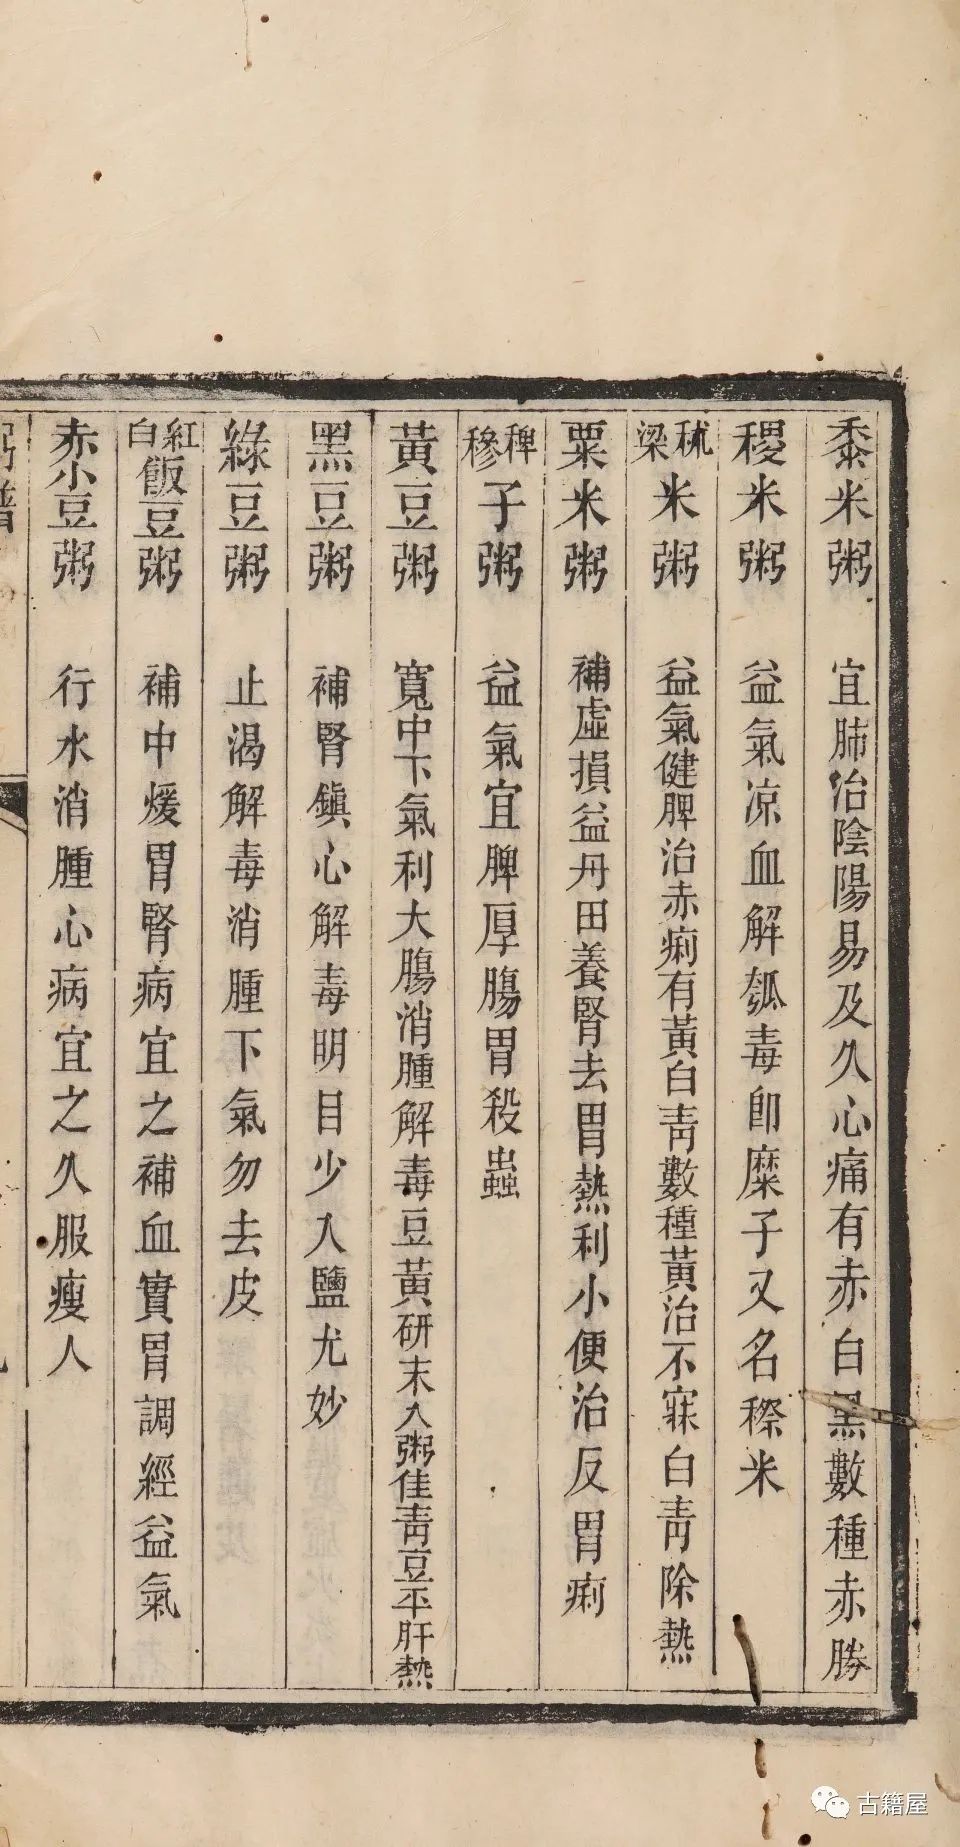 黍米粥　宜肺治陰陽易及久心痛有赤白黑數種赤勝
稷米粥　益氣凉血解瓠毒卽糜子又名穄米
秫粱米粥　益氣健脾治赤痢有黃白靑數種黃治不寐白靑除熱
粟米粥　補虛損益丹田養腎去胃熱利小便治反胃痢
稗穇子粥　益氣宜脾厚腸胃殺蟲
黃豆粥　寬中下氣利大腸消腫解毒豆黃研末入粥佳靑豆平肝熱
黑豆粥　補腎鎭心解毒明目少入鹽尤妙
綠豆粥　止渴解毒消腫下氣勿去皮
紅白飯豆粥　補中煖胃腎病宜之補血實胃調經益氣
赤小豆粥　行水消腫心病宜之久服瘦人
粥譜
古籍屋